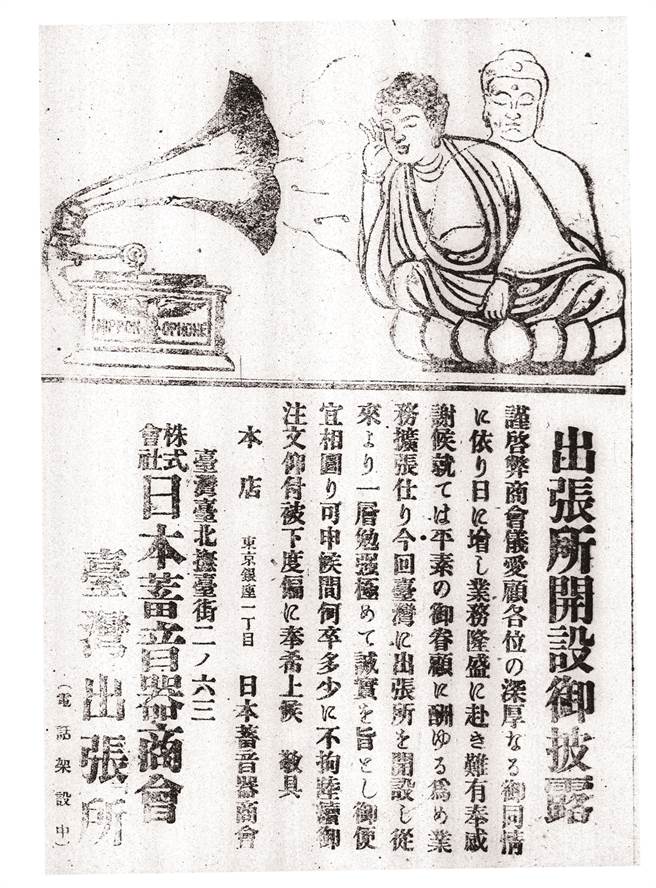 NIPPON OPHONE
出張所開設御披露
謹啓弊商會儀愛顧各位の深厚なる御同情
に依り日に增し業務隆盛に赴き難有奉感
謝候就ては平素の御眷顧に酬ゆる爲め業
務擴張仕り今回臺灣に出張所を開設し從
來より一層勉强極めて誠實を旨とし御便
宜相圖り可申候間何卒多少に不拘陸續御
注文仰付被下度偏に奉希上候 敬具
本店 東京銀座一丁目 日本蓄音器商會
臺灣臺北撫臺街二ノ六三
株式會社日本蓄音器商會
臺灣出張所
(電話架設中)